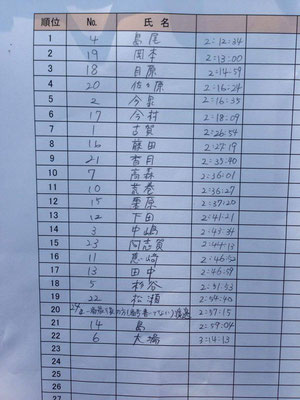 順位 No. 氏名
1 4 島尾 2:12:34
2 19 岡本 2:13:00
3 18 目原 2:14:59
4 20 佐々原 2:16:24
5 2 今泉 2:16:35
6 17 今村 2:18:09
7 1 古賀 2:26:54
8 16 藤田 2:27:19
9 21 有月 2:35:40
10 7 高森 2:36:01
11 10 荒巻 2:36:27
12 15 栗原 2:37:20
13 12 下田 2:41:21
14 3 中嶋 2:41:34
15 23 阿志賀 2:44:13
16 11 2:46:52
17 13 田中 2:46:59
18 5 杉谷 2:51:53
19 22 松瀬 2:54:40
20 2:57:15
21 14 島 2:59:04
22 6 大場 3:14:13
23
24
25
26
27